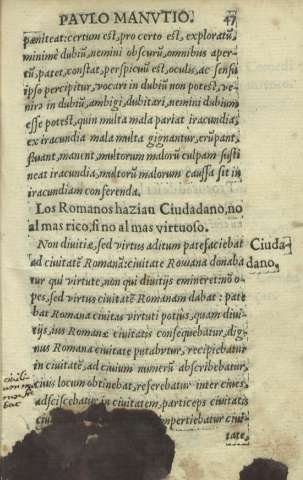 PAVLO MANVTIO. 47
pæniteat: certum est, pro certo est, exploratũ,
minimè dubiũ, nemini obscurũ, omnibus aper-
tũ, patet, cõstat, perspicuũ est, oculis, ac sensu
ipso percipitur, vocari in dubiũ non potest, ve-
nire in dubiũ, ambigi, dubitari, nemini dubium
esse potest, quin multa mala pariat iracundia,
ex iracundia mala multa gignantur, erũpant,
fluant, manent, multorum malorũ culpam susti
neat iracundia, multorũ malorum caussa sit in
iracundiam conferenda.
Los Romanos hazian Ciudadano, no
al mas rico, si no al mas virtuoso.
Non diuitiæ, sed virtus aditum patefaciebat
Ciuda-
ad ciuitatẽ Romanã: ciuitate Romana donaba
dano.
tur qui virtute, non qui diuitijs emineret: nõ o-
pes, sed virtus ciuitatẽ Romanam dabat: pate
bat Romana ciuitas virtuti potius, quam diui-
tijs, ius Romanæ ciuitatis consequebatur, dig-
nus Romana ciuitate putabatur, recipiebatur
in ciuitatẽ, ad ciuium numerũ abscribebatur,
ciuis locum obtinebat, referebatur inter ciues,
adsciscebatur in ciuitatem, particeps ciuitatis
impertiebatur ciui-
tate,